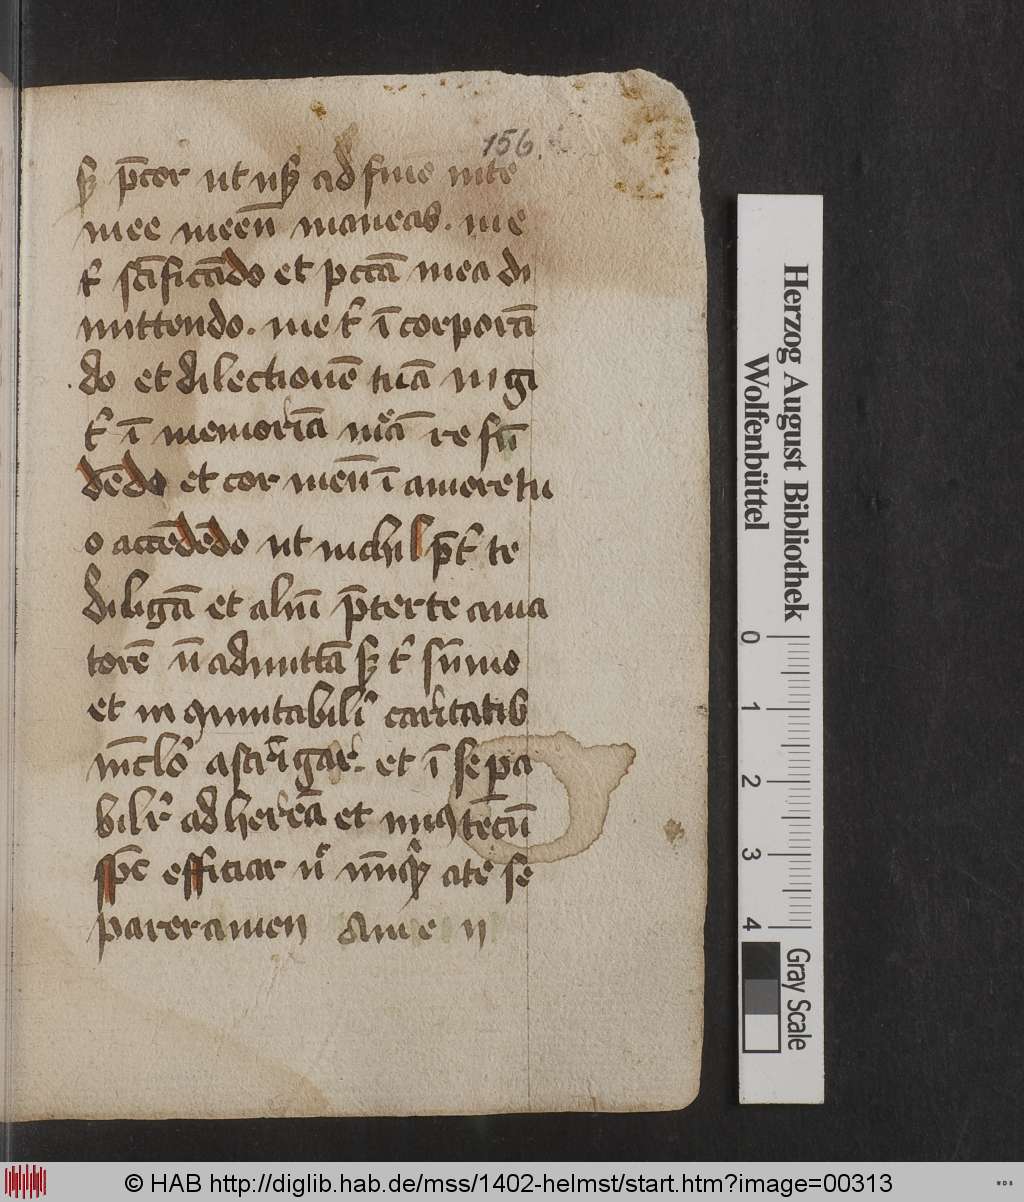 156
sꝫ p̄cor ut usqꝫ ad fine vite
mee mecū maneas . me
t̕ sc̄ificādo et pctā mea di
mittendo . me t̕ ī corporā
do et dilectionē tuā iugi
t̕ ī memoriā mēā re fū
dēdo et cor meū ī amore tu
o accēdēdo ut nichil p̄t̕ te
diligā et aliū p̄ter te ama
torē n̄ admittā sꝫ t̕ sūmo
et incōmutabili caritatis
vīclo astrīgar . et ī se pa
bilr̕ ad hereā et unꝰ tecū
sp̄c efficiar ut nūqꝫ a te se
parer amen Ame n
Herzog August Bibliothek
Wolfenbüttel
0 1 2 3 4
Gray Scale
© HAB http://diglib.hab.de/mss/1402-helmst/start.htm?image=00313